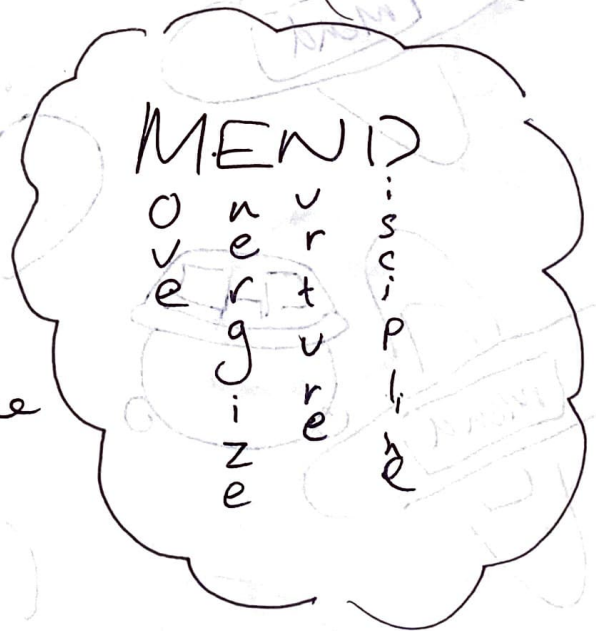 MEND
Move
Energize
Nurture
Discipline
e